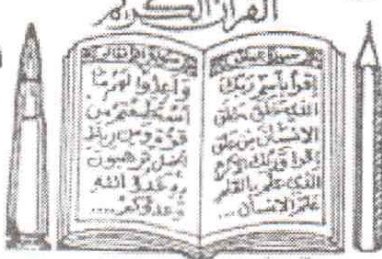 القرآن الكريم
اقرأ باسم ربك
الذى خلق خلق
الانسان من علق
اقرأ وربك الاكرم
الذى علم بالقلم
علم الانسان ...
وأعدوا لهم ما
استطعتم من
قوة ومن رباط
الخيل ترهبون
به عدو الله
وعدوكم ....